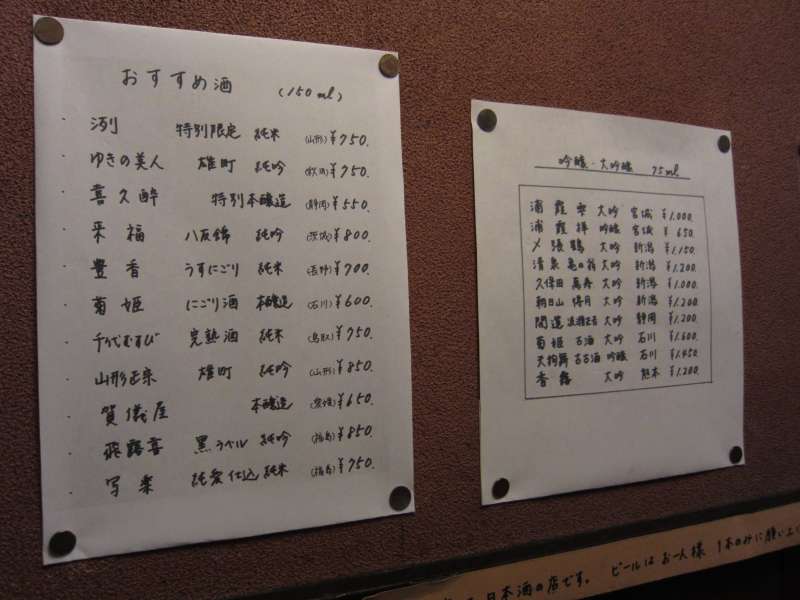 おすすめ酒 (150ml)
・ 洌 特別限定 純米 (山形) ¥750.
・ ゆきの美人 雄町 純吟 (秋田) ¥750.
・ 喜久酔 特別本醸造 (静岡) ¥550.
・ 来福 八反錦 純吟 (茨城) ¥800.
・ 豊香 うすにごり 純米 (長野) ¥700.
・ 菊姫 にごり酒 本醸造 (石川) ¥600.
・ 千代むすび 完熟酒 純米 (鳥取) ¥750.
・ 山形正宗 雄町 純吟 (山形) ¥850.
・ 賀儀屋 本醸造 (愛媛) ¥650.
・ 飛露喜 黒ラベル 純吟 (福島) ¥850.
・ 写楽 純愛仕込 純米 (福島) ¥750.
吟醸・大吟醸 75ml
浦霞 大吟 宮城 ¥1,000.
浦霞禅 吟醸 宮城 ¥650.
〆張鶴 大吟 新潟 ¥1,150.
清泉 亀の翁 大吟 新潟 ¥1,200.
久保田 萬寿 大吟 新潟 ¥1,000.
朝日山 得月 大吟 新潟 ¥1,200.
開運 波瀬正吉 大吟 静岡 ¥1,200.
菊姫 古酒 大吟 石川 ¥1,600.
天狗舞 古古酒 吟醸 石川 ¥1,450.
香露 大吟 熊本 ¥1,200.
日本酒の店です。 ビールはお一人様 1本のみに願い